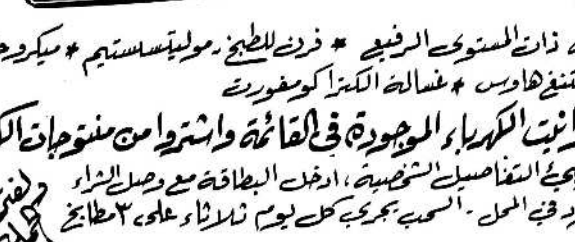 ذات المستوى الرفيع * فرن للطبخ - موليتسستيم * ميكروجـ
ـتنغهاوس * غسالة الكترا كومفورت
ـرانيت الكهرباء الموجودة في القائمة واشتروا من منتوجات الكـ
ـيئ التفاصيل الشخصية، ادخل البطاقة مع وصل الشراء
ـد في المحل - السحب يجري كل يوم ثلاثاء على ٣ مطابخ